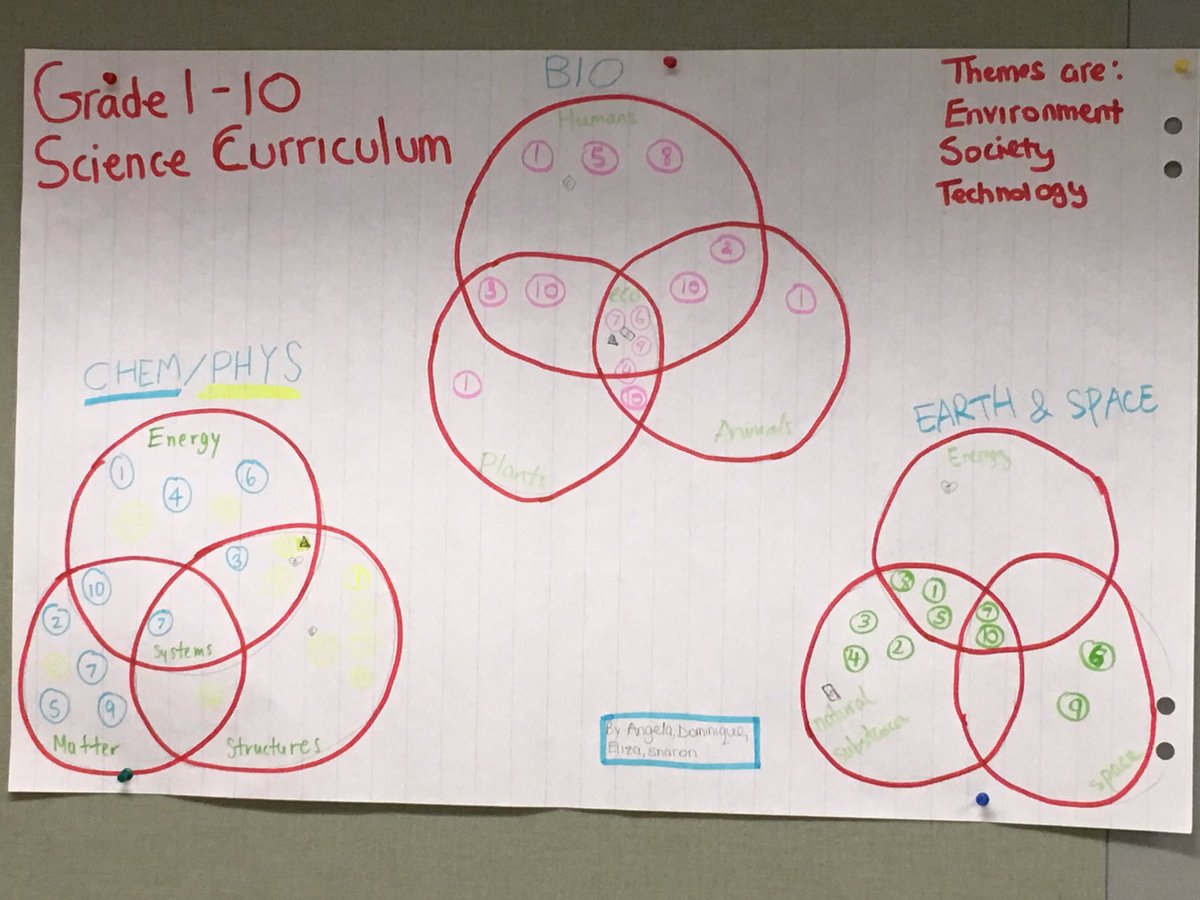 Grade 1-10
Science Curriculum
BIO
Themes are:
Environment
Society
Technology
Humans
1 5 8
2
3 10
10
1
eco
7 6
9
4
10
1
Animals
Plants
CHEM/PHYS
Energy
1 4 6
3
10
2
7
Systems
7
5 9
Matter
Structures
EARTH & SPACE
Energy
8 1
5
7
10
3
4 2
6
9
natural
substances
space
By Angela, Dominique,
Eliza, Sharon